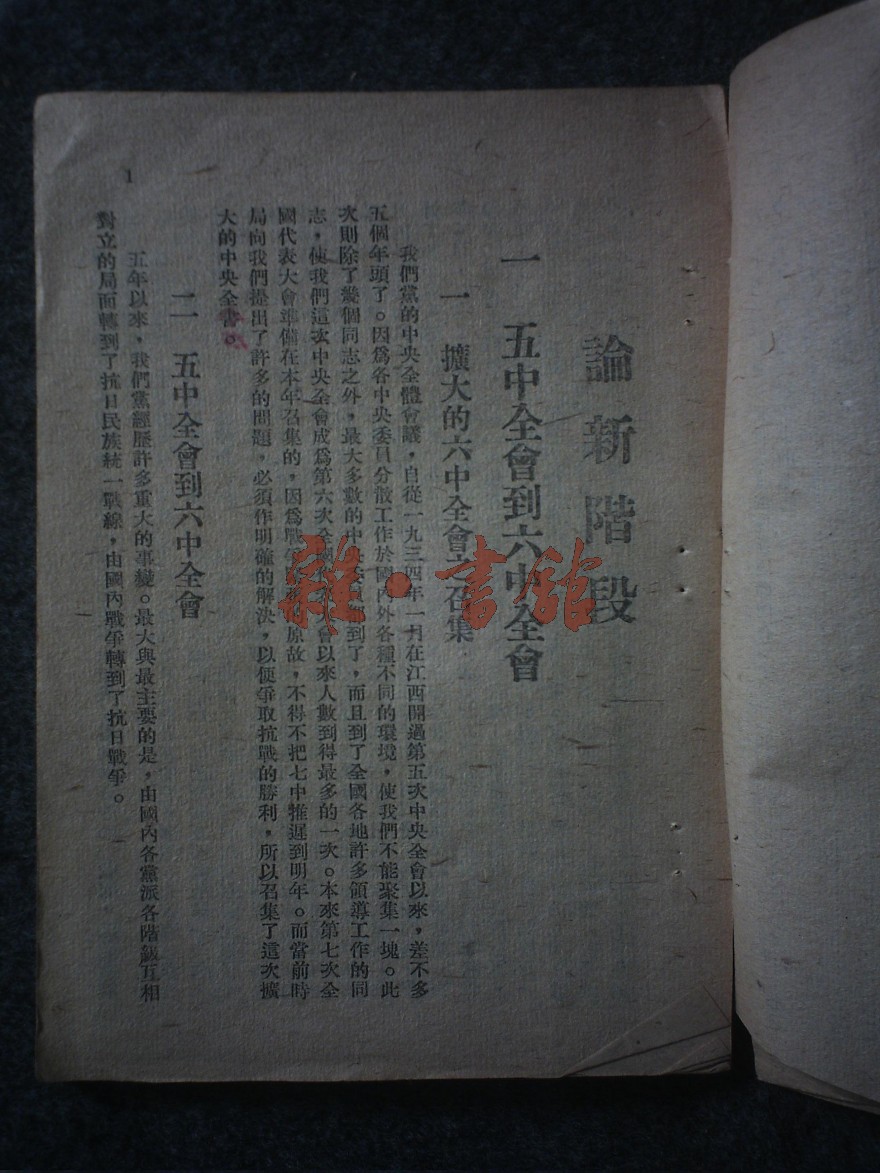 論新階段
一 五中全會到六中全會
一 擴大的六中全會之召集
我們黨的中央全體會議，自從一九三四年一月在江西開過第五次中央全會以來，差不多
五個年頭了。因爲各中央委員分散工作於國內外各種不同的環境，使我們不能聚集一塊。此
次則除了幾個同志之外，最大多數的中央委員都到了，而且到了全國各地許多領導工作的同
志，使我們這次中央全會成爲第六次全國代表大會以來人數到得最多的一次。本來第七次全
國代表大會準備在本年召集的，因爲戰爭 原故，不得不把七中推遲到明年。而當前時
局向我們提出了許多的問題，必須作明確的解決，以便爭取抗戰的勝利，所以召集了這次擴
大的中央全書。
二 五中全會到六中全會
五年以來，我們黨經歷許多重大的事變。最大與最主要的是，由國內各黨派各階級互相
對立的局面轉到了抗日民族統一戰線，由國內戰爭轉到了抗日戰爭。
1
雜·書館